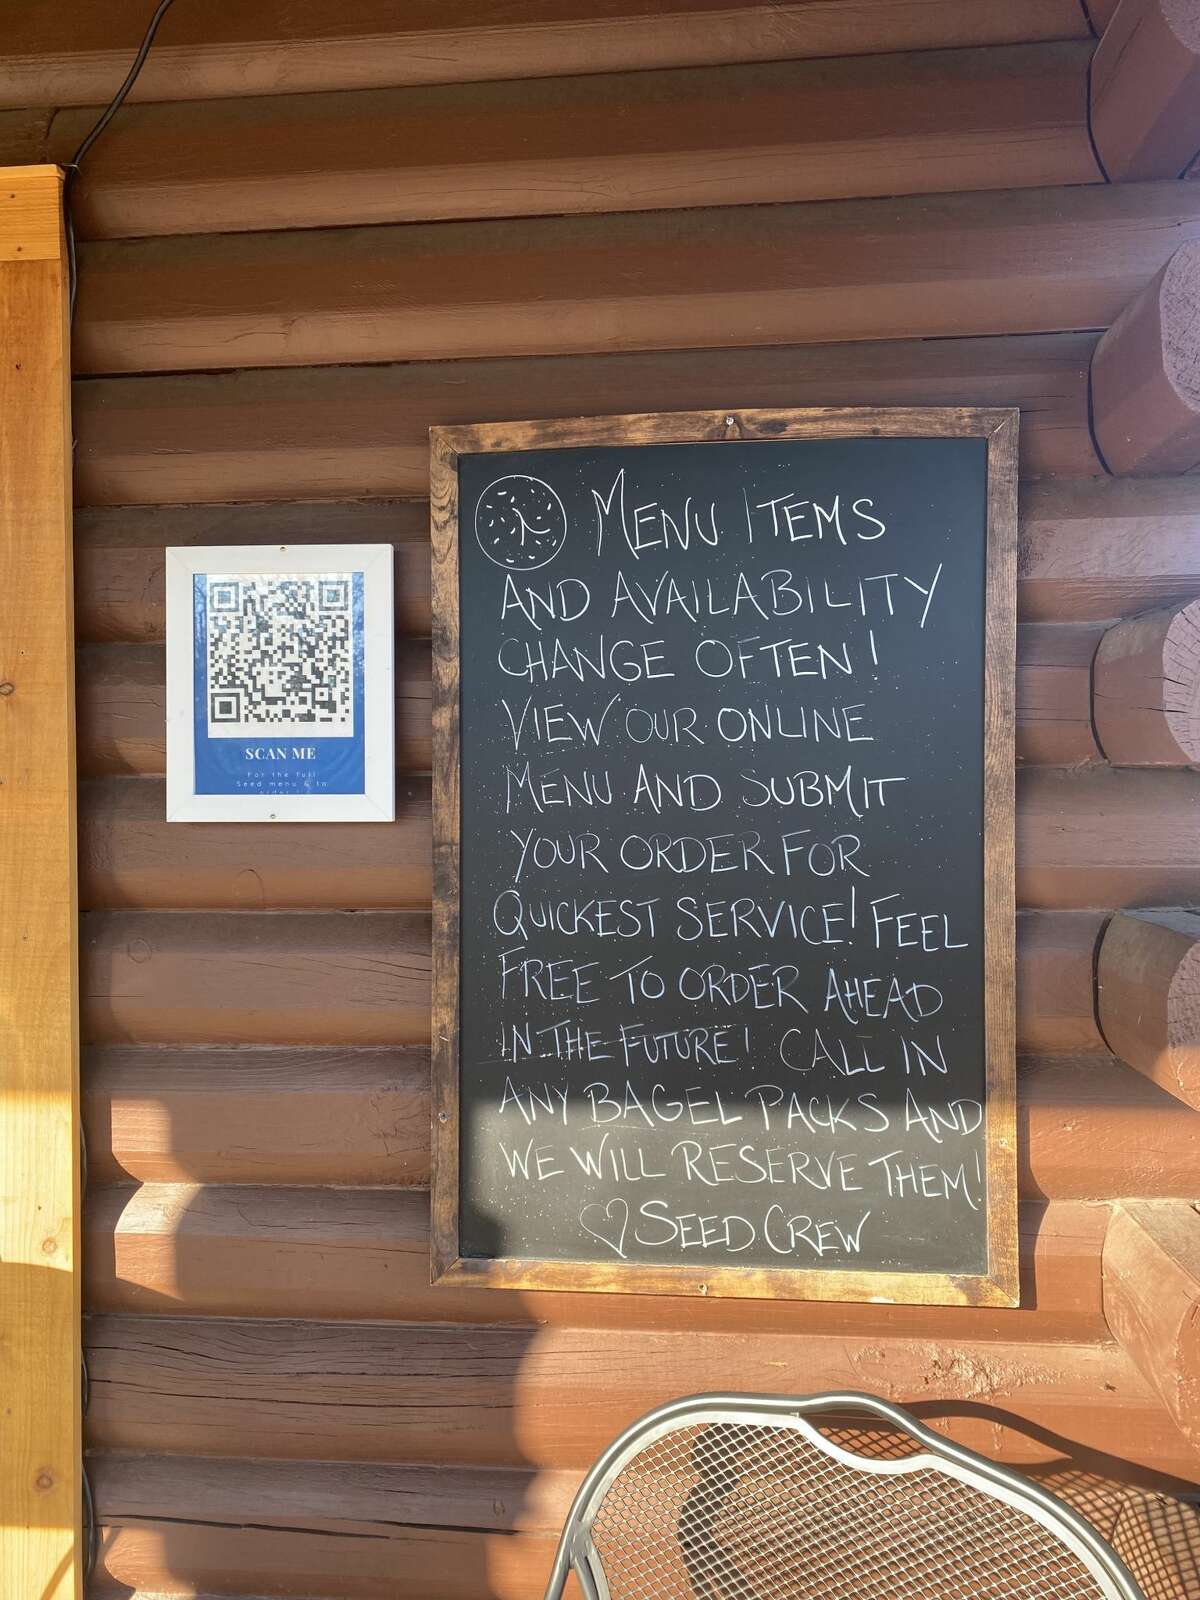 SCAN ME
For the full
Seed menu & to
MENU ITEMS
AND AVAILABILITY
CHANGE OFTEN!
VIEW OUR ONLINE
MENU AND SUBMIT
YOUR ORDER FOR
QUICKEST SERVICE! FEEL
FREE TO ORDER AHEAD
IN THE FUTURE! CALL IN
ANY BAGEL PACKS AND
WE WILL RESERVE THEM!
♡ SEED CREW